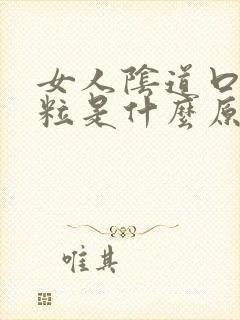 女人陰道口
粒是什麼原
唯其